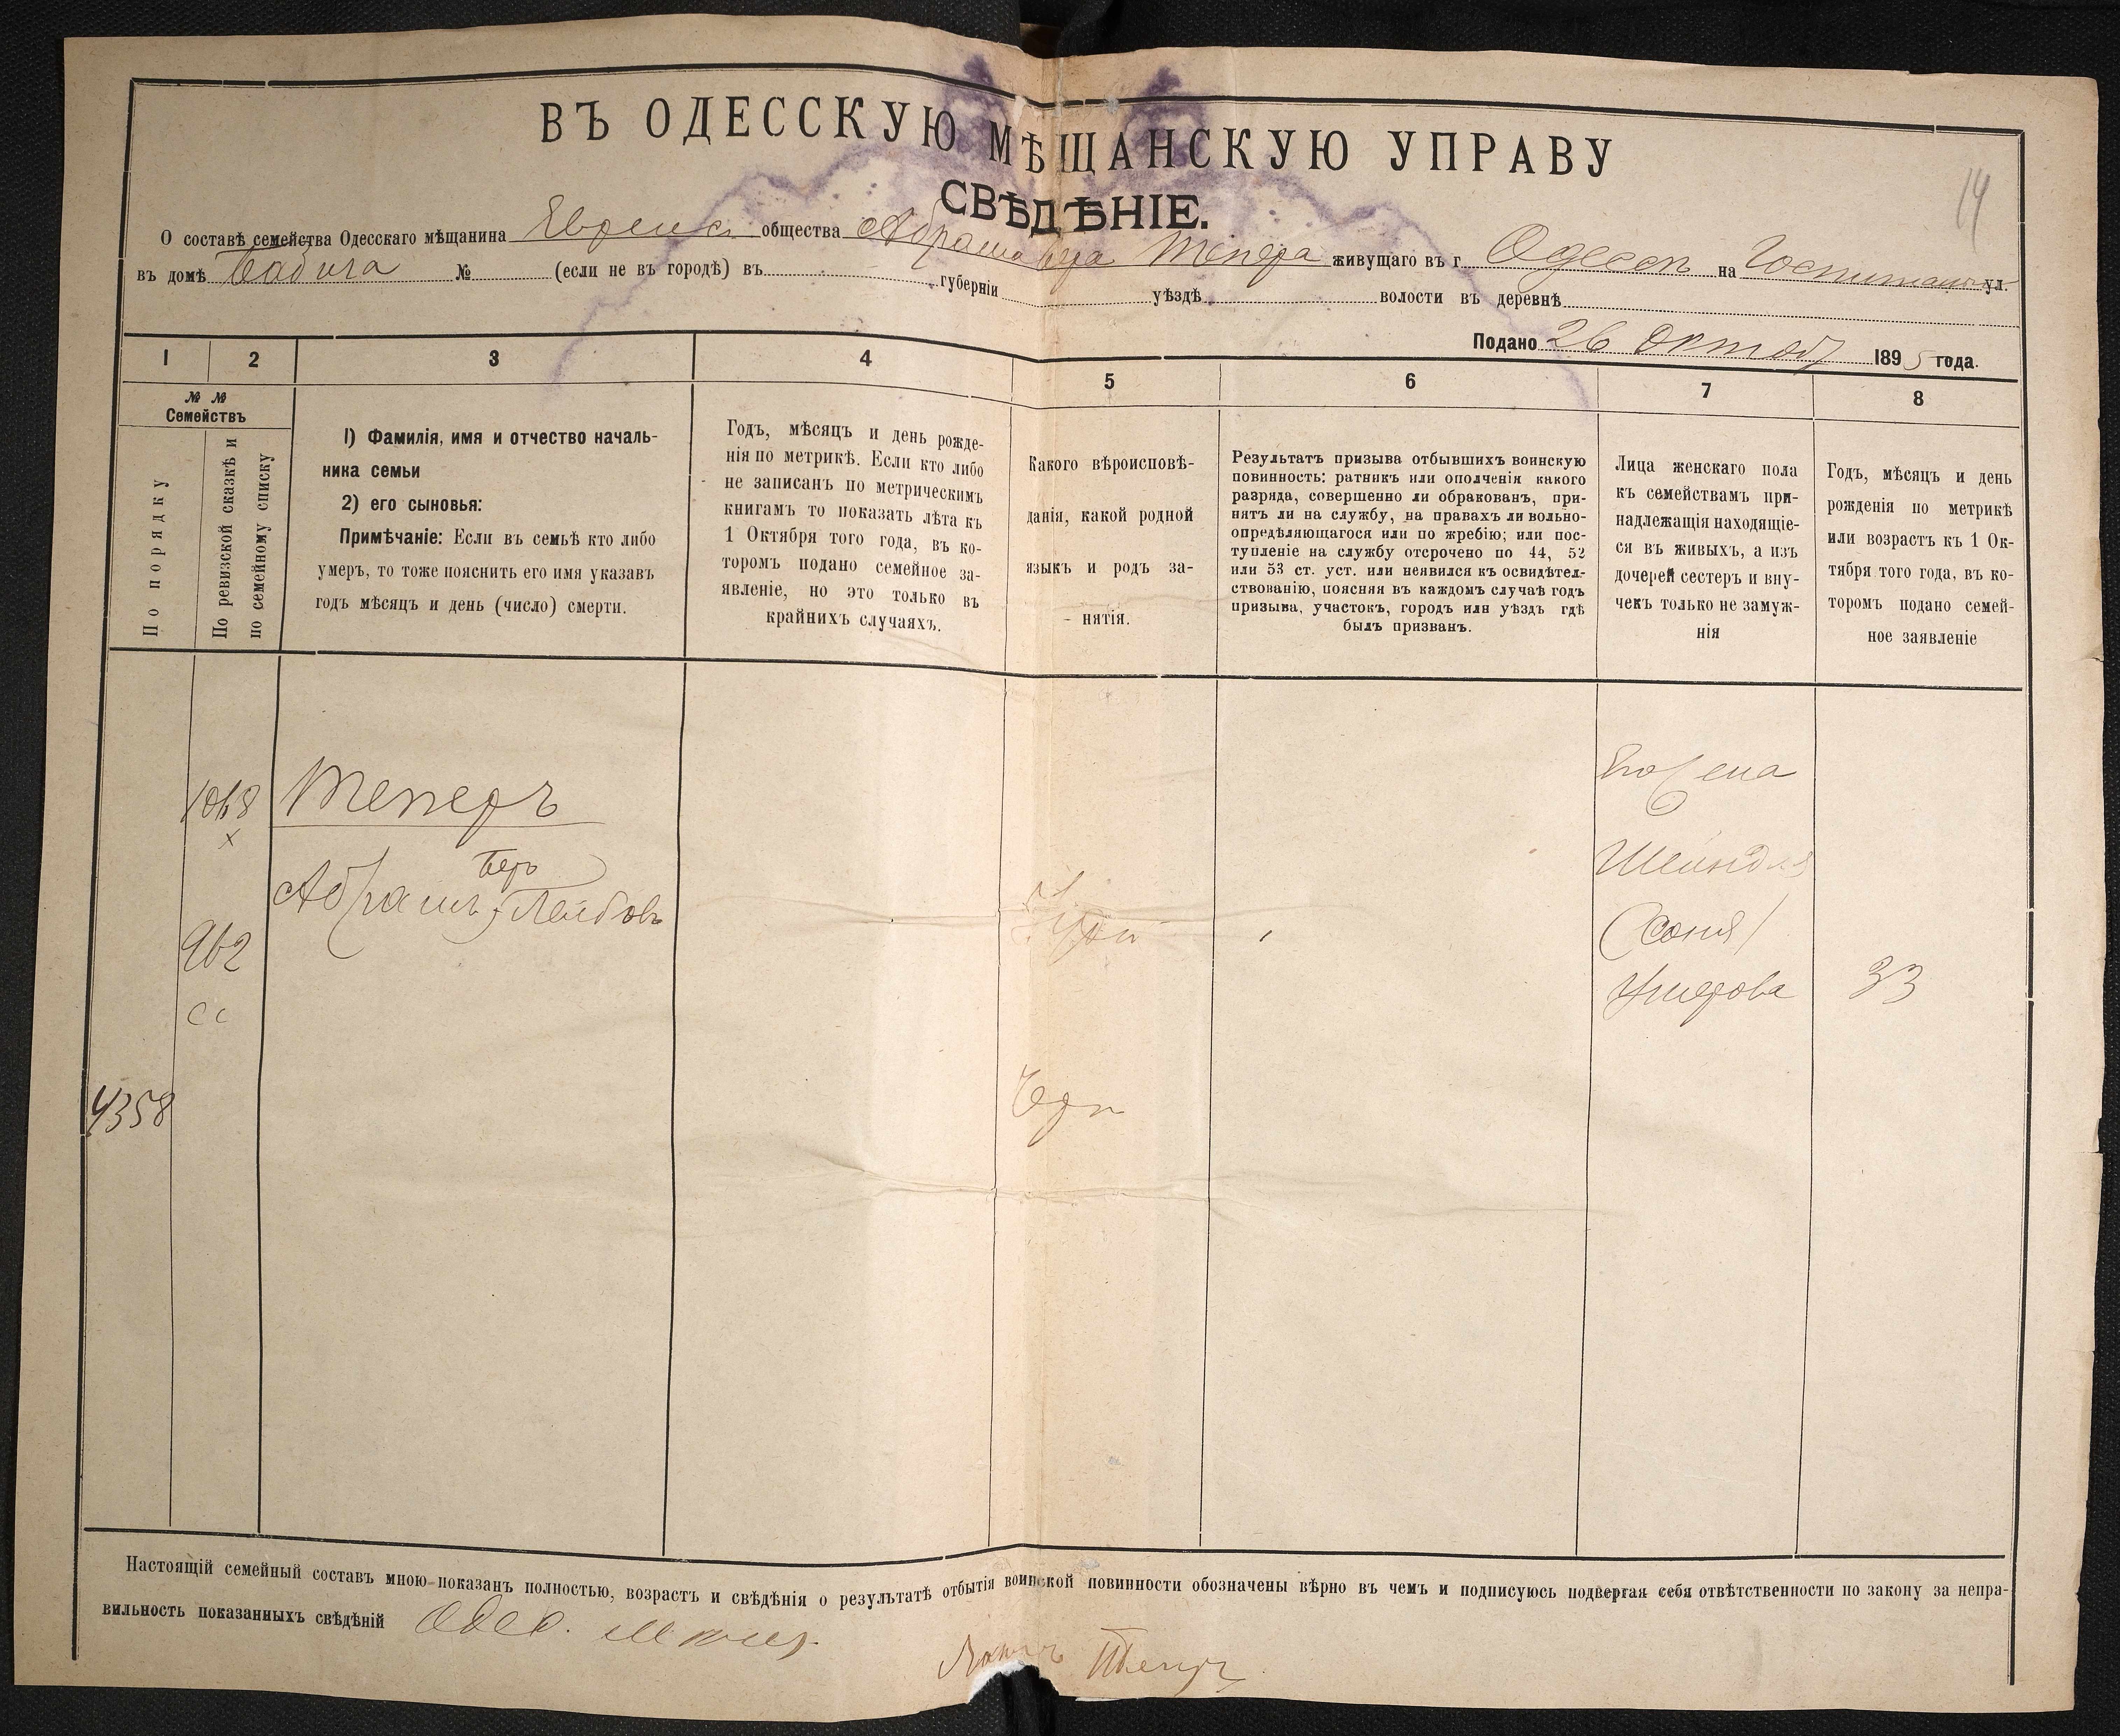 ВЪ ОДЕССКУЮ МѢЩАНСКУЮ УПРАВУ
СВѢДѢНІЕ.
14
О составѣ семейства Одесскаго мѣщанина Евреиск. общества Абрама Бера Тепера живущаго въ г. Одессѣ на ул.
въ домѣ № (если не въ городѣ) въ губерніи уѣздѣ волости въ деревнѣ
Подано 26 Октяб 1895 года.
1 2 3 4 5 6 7 8
№ № Семействъ
По порядку
По ревизской сказкѣ и по семейному списку
1) Фамилія, имя и отчество началь-
ника семьи
2) его сыновья:
Примѣчаніе: Если въ семьѣ кто либо
умеръ, то тоже пояснить его имя указавъ
годъ мѣсяцъ и день (число) смерти.
Годъ, мѣсяцъ и день рожде-
нія по метрикѣ. Если кто либо
не записанъ по метрическимъ
книгамъ то показать лѣта къ
1 Октября того года, въ ко-
торомъ подано семейное за-
явленіе, но это только въ
крайнихъ случаяхъ.
Какого вѣроисповѣ-
данія, какой родной
языкъ и родъ за-
нятія.
Результатъ призыва отбывшихъ воинскую
повинность: ратникъ или ополченія какого
разряда, совершенно ли обракованъ, при-
нятъ ли на службу, на правахъ ли вольно-
опредѣляющагося или по жребію; или пос-
тупленіе на службу отсрочено по 44, 52
или 53 ст. уст. или неявился къ освидѣтел-
ствованію, поясняя въ каждомъ случаѣ годъ
призыва, участокъ, городъ или уѣздъ гдѣ
былъ призванъ.
Лица женскаго пола
къ семействамъ при-
надлежащія находящіе-
ся въ живыхъ, а изъ
дочерей сестеръ и вну-
чекъ только не замуж-
нія
Годъ, мѣсяцъ и день
рожденія по метрикѣ
или возрастъ къ 1 Ок-
тября того года, въ ко-
торомъ подано семей-
ное заявленіе
Теперъ
Беръ
Абрамъ Лейбовъ
962
4358
жена
Шейндля
(Соня)
Ушерова
33
Настоящій семейный составъ мною показанъ полностью, возрастъ и свѣдѣнія о результатѣ отбытія воинской повинности обозначены вѣрно въ чемъ и подписуюсь подвергая себя отвѣтственности по закону за непра-
вильность показанныхъ свѣдѣній Одес.